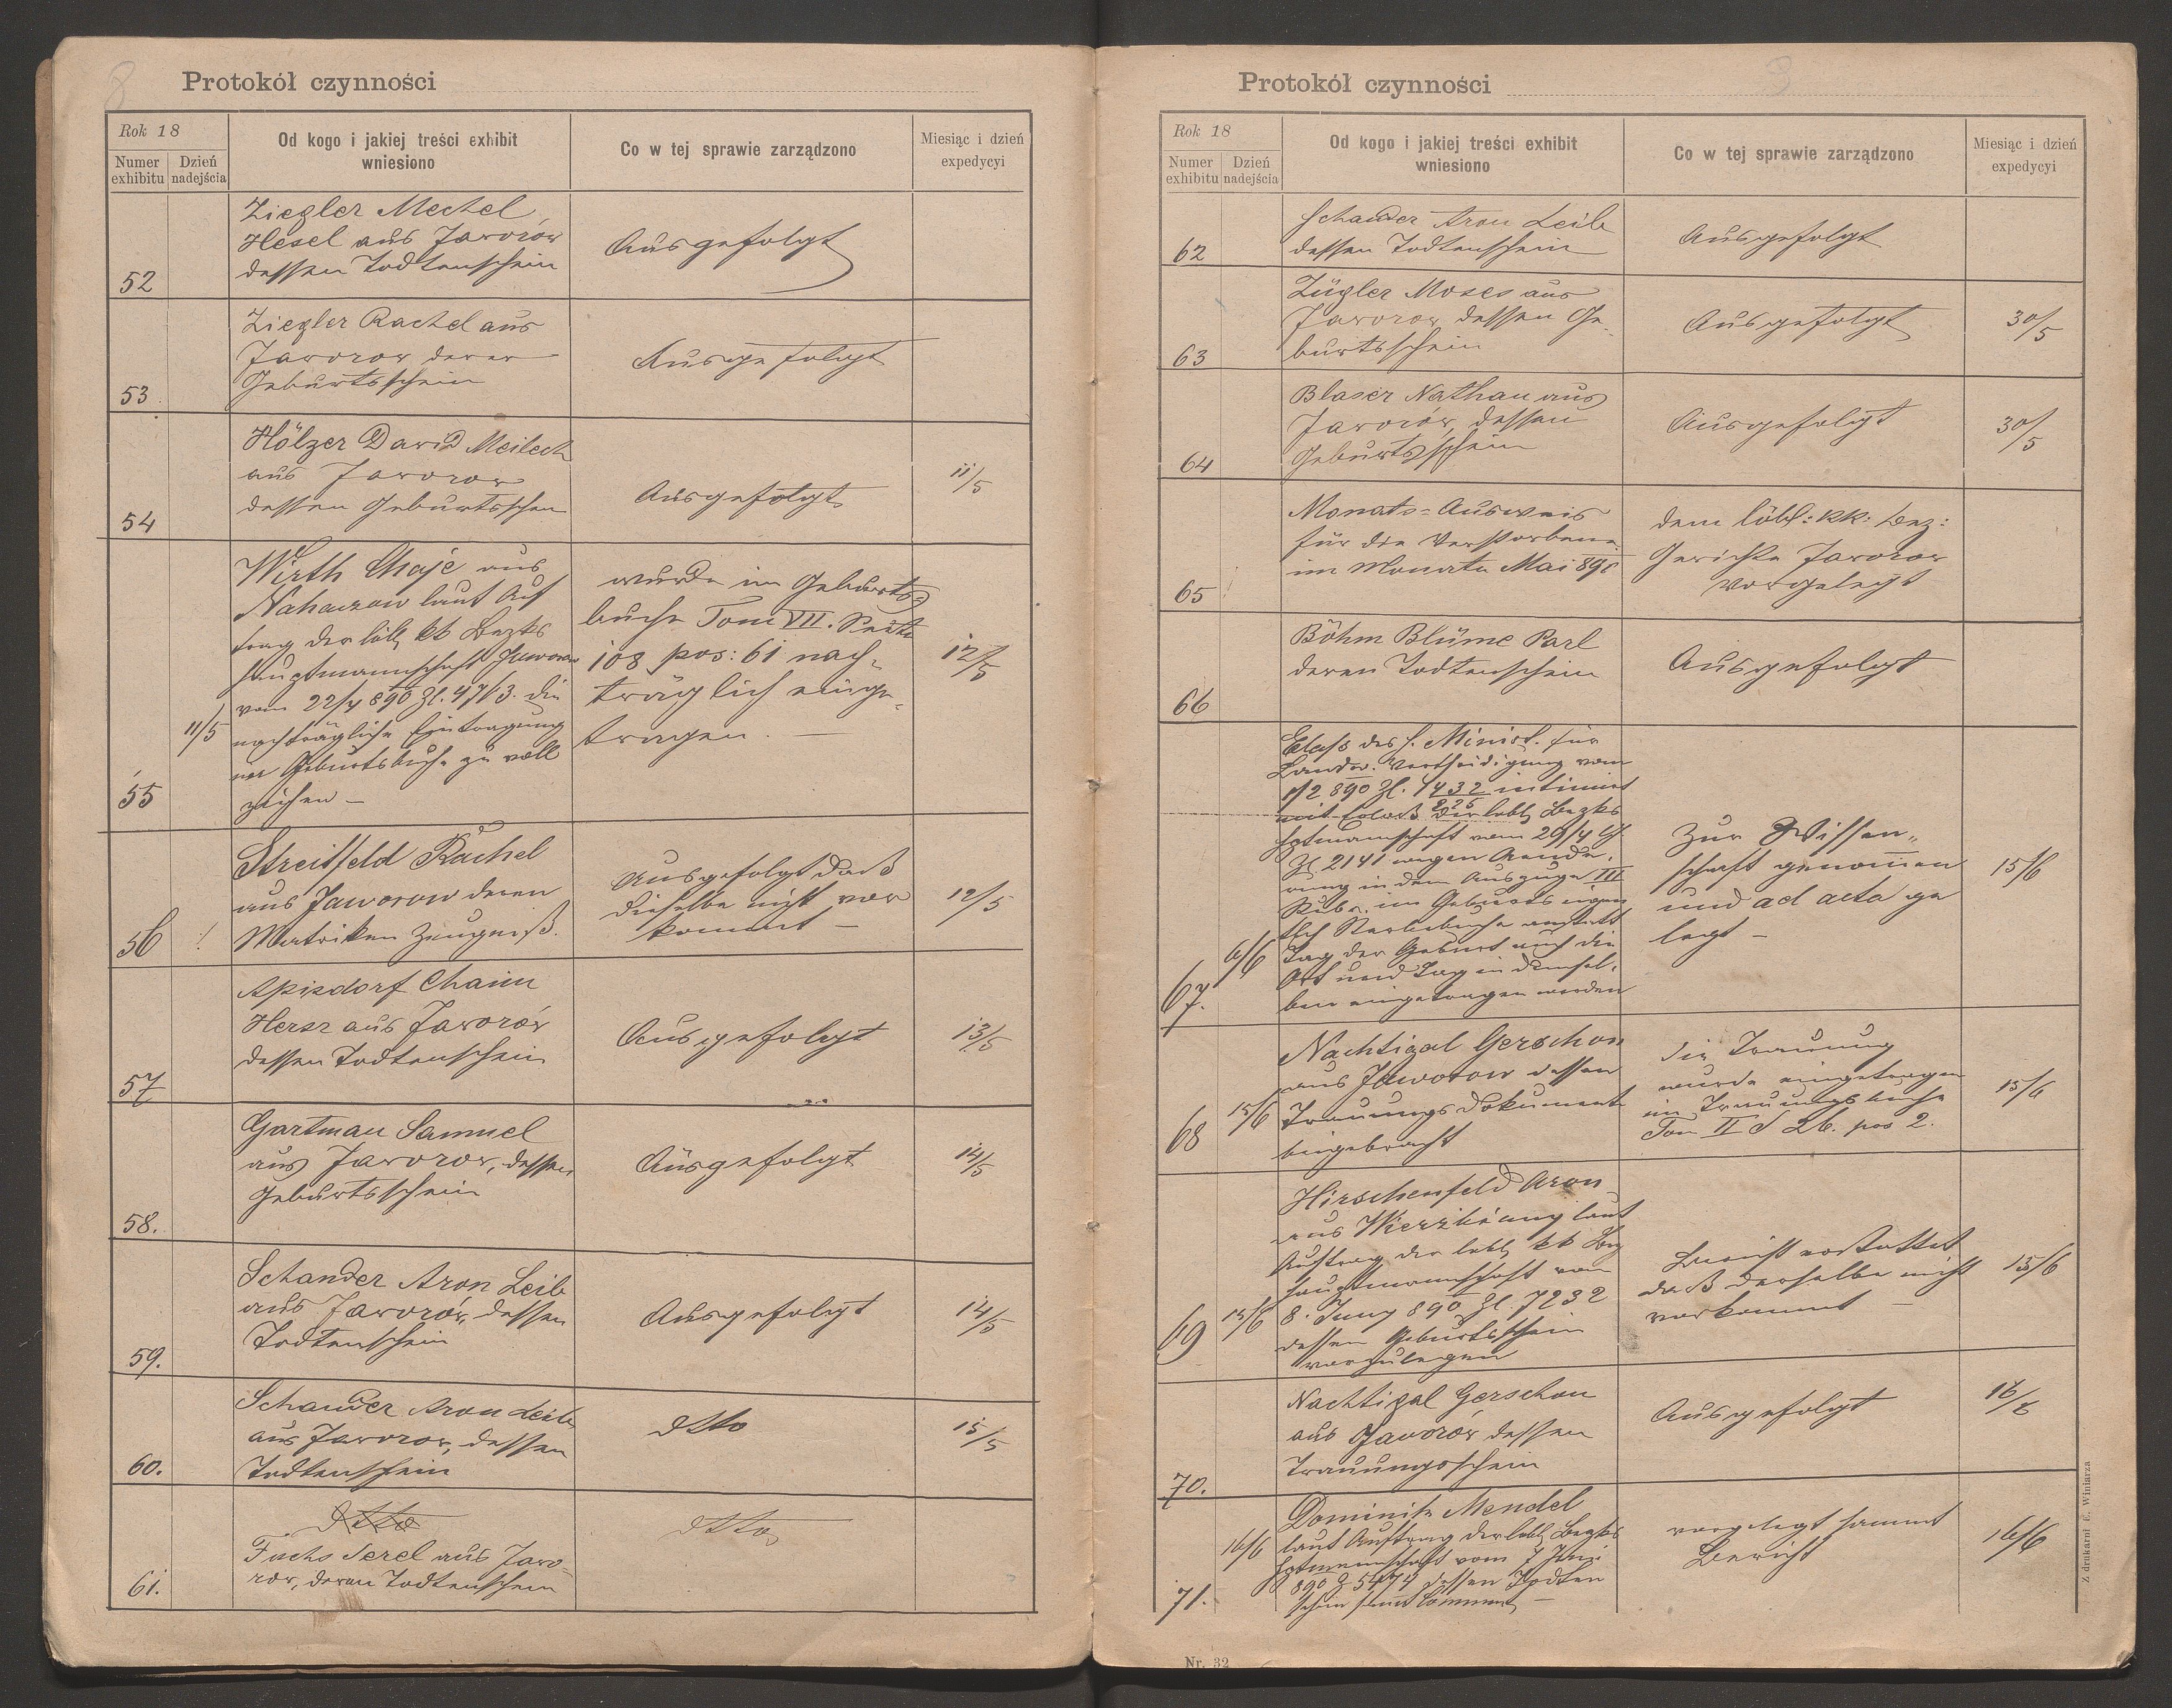 8
Protokół czynności
Rok 18
Numer exhibitu
Dzień nadejścia
Od kogo i jakiej treści exhibit
wniesiono
Co w tej sprawie zarządzono
Miesiąc i dzień
expedycyi
52
Ziegler Mechel
Hesel aus Jaworów
dessen Todtenschein
Ausgefolgt
53
Ziegler Rachel aus
Jaworow deren
Geburtsschein
Ausgefolgt
54
Hölzer David Meilech
aus Jaworow
dessen Geburtsschein
Ausgefolgt
11/5
55
11/5
Wirth Chaje aus
Nahaczow laut Auf
trag der löbl kk Bezks
hauptmannschaft Jaworow
vom 22/4 890 Zl. 4713. die
nachträgliche Eintragung
im Geburtsbuche zu voll
ziehen –
wurde im Geburts-
buche Tom VII. Seite
108 pos: 61 nach-
träglich einge-
tragen. –
12/5
56
Streitfeld Rachel
aus Jaworow deren
Matriken Zeugniß.
Ausgefolgt daß
dieselbe nicht vor
kommt –
12/5
57
Apisdorf Chaim
Hersz aus Jaworów
dessen Todtenschein
Ausgefolgt
13/5
58.
Gartman Samuel
aus Jaworow, dessen
Geburtsschein
Ausgefolgt
14/5
59.
Schander Aron Leib
aus Jaworów, dessen
Todtenschein
Ausgefolgt
14/5
60.
Schander Aron Leib
aus Jaworow, dessen
Todtenschein
dtto
15/5
61.
dtto
Fuchs Serel aus Jawo-
row, deren Todtenschein
dtto
Protokół czynności
Rok 18
Numer exhibitu
Dzień nadejścia
Od kogo i jakiej treści exhibit
wniesiono
Co w tej sprawie zarządzono
Miesiąc i dzień
expedycyi
62
Schander Aron Leib
dessen Todtenschein
Ausgefolgt
63
Zügler Moses aus
Jaworow, dessen Ge-
burtsschein
Ausgefolgt
30/5
64
Blaser Nathan aus
Jaworów, dessen
Geburtsschein
Ausgefolgt
30/5
65
Monats-Ausweis
für die Verstorbene
im Monate Mai 890
dem löbl: kk: Bez:
Gerichte Jaworow
vorgelegt
66
Böhm Blüme Parl
deren Todtenschein
Ausgefolgt
67.
6/6
Erlaß des h. Minist. für
Landes. Vertheidigung vom
1/2 890 Zl. 1432 intimirt
225
mit Erlaß der löbl Bezks
hptmannschaft vom 29/4
Zl 2141 wegen Aende-
rung in dem Auszuge III
Rubr. im Geburts
Sterbebuche anstatt
Tag der Geburt auch die
Ort und Tag in demsel-
ben eingetragen werden
Zur Wissen-
schaft genommen
und ad acta ge
legt –
15/6
68
15/6
Nachtigal Gerschon
aus Jaworow dessen
Trauungs Dokument
eingebracht
die Trauung
wurde eingetragen
im Trauungsbuche
Tom II S 26. pos 2.
15/6
69
15/6
Hirschenfeld Aron
aus Wierzbiany laut
Auftrag der löbl kk Bez
hauptmannschaft vom
8. Juny 890 Zl. 7232
dessen Geburtsschein
vorzulegen
Bericht erstattet
daß derselbe nicht
vorkommt –
15/6
70.
Nachtigal Gerschon
aus Jaworów dessen
Trauungsschein
Ausgefolgt
16/6
71.
16/6
Dominitz Mendel
laut Auftrag der löbl Bezks
hptmannschaft vom 7 Juni
890 Z 5474 dessen Todten
schein
vorgelegt sammt
Bericht
16/6
Z drukarni E. Winiarza
Nr. 32